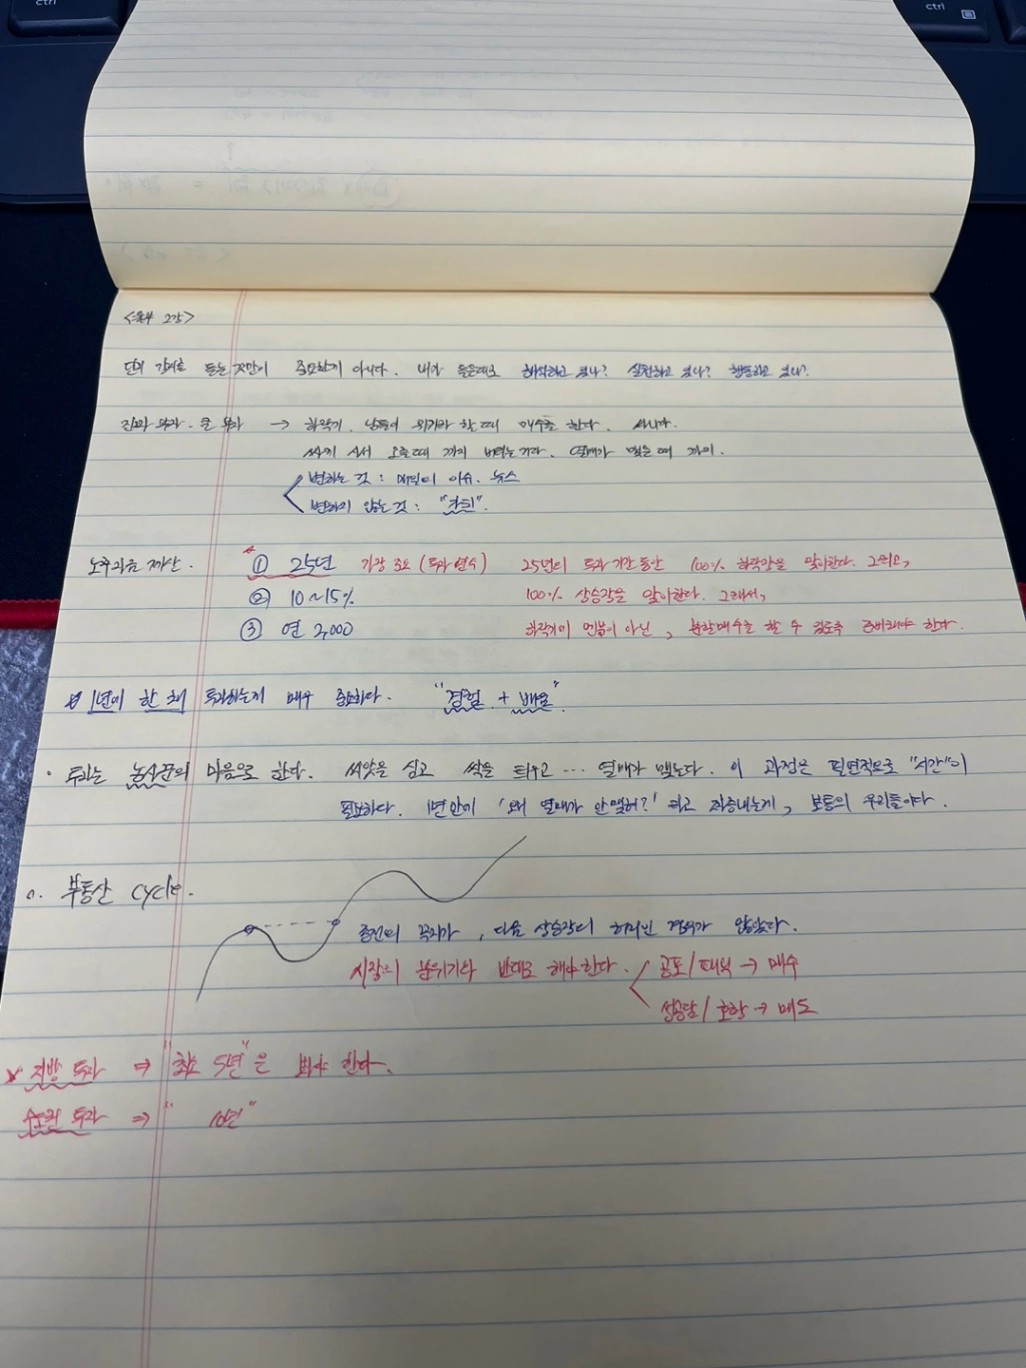 단지 강의를 듣는 것만이 중요한게 아니다. 내가 들은대로 해석하고 있나? 실천하고 있나? 행동하고 있나?
→ 하락기, 남들이 위기라 할 때 매수를 한다.
싸게 사서 오를때 까지 버티는거다. 열매가 맺을 때 까지.
변하는 것 : 매일의 이슈. 뉴스
변하지 않는 것 :
노후자금 계산.
* ① 25년 가장 중요 (투자 연수) 25년의 투자 기간 동안 100% 하락장을 맞이한다. 그리고,
② 10~15% 100% 상승장을 맞이한다. 그래서,
③ 연 2,000 하락기에 멘붕이 아닌, 분할매수를 할 수 있도록 준비해야 한다.
1년에 한 채 투자하는게 매우 중요하다. "경험 + 배움"
· 투자는 농사꾼의 마음으로 한다. 씨앗을 심고 싹을 틔우고 ... 열매가 맺는다. 이 과정은 필연적으로 "시간"이
필요하다. 1년만에 '왜 열매가 안 맺혀?' 라고 짜증내는게, 보통의 우리들이다.
부동산 cycle.
종전의 꼭지가, 다음 상승장의 허리인 경우가 많았다.
시장의 분위기와 반대로 해야 한다.
공포/패닉 → 매수
/ 호황 → 매도
지방 투자 ⇒ "최소 5년"은 봐야 한다.
수도권 투자 ⇒ " 10년"